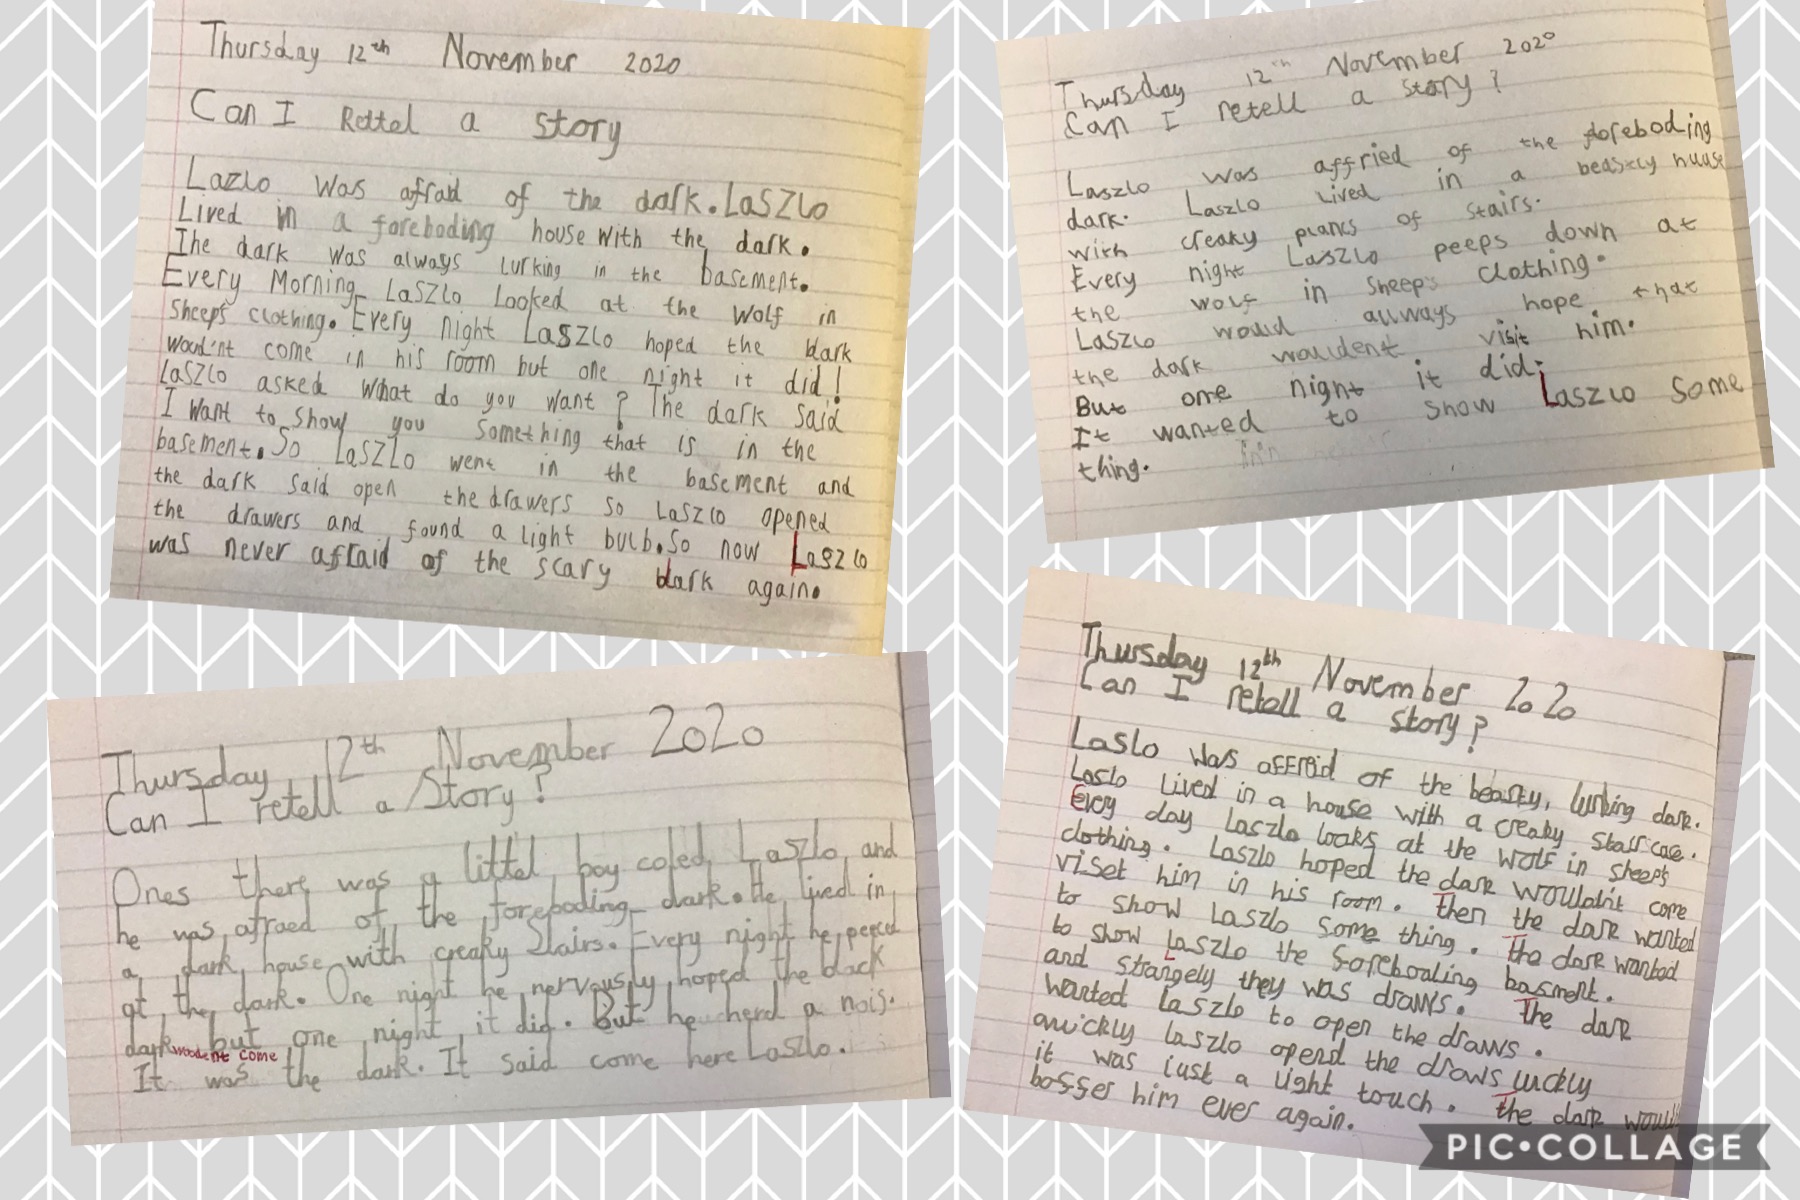 Thursday 12th November 2020
Can I Rettel a story
Lazlo was afraid of the dark. Laszlo
Lived in a foreboding house with the dark.
The dark was always lurking in the basement.
Every Morning Laszlo Looked at the Wolf in
sheep's clothing. Every night Laszlo hoped the dark
would'nt come in his room but one night it did!
Laszlo asked what do you want? The dark said
I want to show you something that is in the
basement. So Laszlo went in the basement and
the dark said open the drawers so Laszlo opened
the drawers and found a light bulb. So now Laszlo
was never afraid of the scary dark again.
Thursday 12th November 2020
Can I retell a story?
Laszlo was affried of the foreboding
dark. Laszlo lived in a beastly huuse
with creaky plancs of stairs.
Every night Laszlo peeps down at
the wolf in sheep's clothing.
Laszlo would allways hope that
the dark wouldent visit him.
But one night it did;
It wanted to show Laszlo some
thing.
Thursday 12th November 2020
Can I retell a story?
Ones there was a littel boy coled Laszlo, and
he was afraed of the foreboding dark. He lived in
a dark house with creaky stairs. Every night he peeced
at the dark. One night he nervously hoped the black
dark woodent come but one night it did. But he herd a nois.
It was the dark. It said come here Laszlo.
Thursday 12th November 2020
Can I retell a story?
Laslo was affraid of the beasty, lurking dark.
Laslo Lived in a house with a creaky stair case.
Every day Laszlo looks at the wolf in sheep's
clothing. Laszlo hoped the dark wouldn't come
viset him in his room. Then the dark wanted
to show Laszlo some thing. The dark wanted
to show Laszlo the foreboding basment.
and strangely they was draws. The dark
wanted Laszlo to open the draws.
quickly Laszlo opend the draws luckly
it was just a light touch. The dark
bosser him ever again.
PIC•COLLAGE